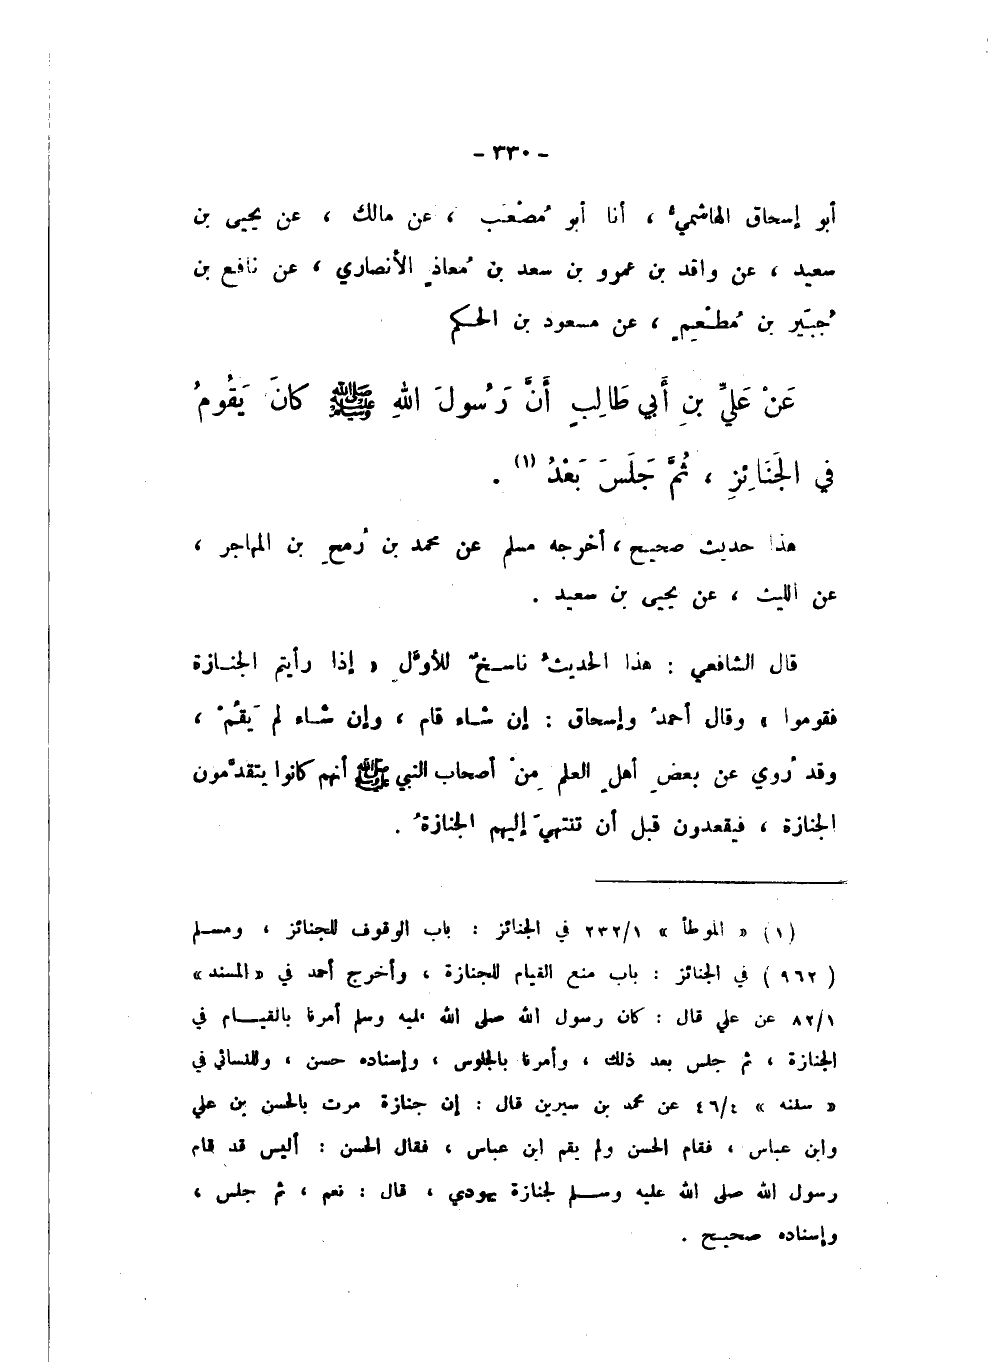 - ٣٣٠ -
أبو إسحاق الهاشميُّ ، أنا أبو مُصْعَب ، عن مالك ، عن يحيى بن
سعيد ، عن واقد بن عمرو بن سعد بن مُعاذٍ الأنصاري ، عن نافع بن
جُبَيْر بن مُطْعِمٍ ، عن مسعود بن الحكم
عَنْ عَلِيِّ بنِ أَبي طَالِبٍ أَنَّ رَسُولَ اللهِ ﷺ كَانَ يَقُومُ
في الجَنَائِزِ ، ثُمَّ جَلَسَ بَعْدُ (١) .
هذا حديث صحيح ، أخرجه مسلم عن محمد بن رُمحِ بن المهاجر ،
عن الليث ، عن يحيى بن سعيد .
قال الشافعي : هذا الحديثُ ناسخٌ للأوَّلِ « إذا رأيتم الجنازة
فقوموا » وقال أحمدُ وإسحاق : إن شاء قام ، وإن شاء لم يَقُمْ ،
وقد رُوي عن بعضِ أهلِ العلم مِنْ أصحاب النبي ﷺ أنهم كانوا يتقدَّمون
الجنازة ، فيقعدون قبل أن تنتهيَ إليهم الجنازةُ .
(١) « الموطأ » ٢٣٢/١ في الجنائز : باب الوقوف للجنائز ، ومسلم
( ٩٦٢ ) في الجنائز : باب منع القيام للجنازة ، وأخرج أحمد في « المسند »
٨٢/١ عن علي قال : كان رسول الله صلى الله عليه وسلم أمرنا بالقيام في
الجنازة ، ثم جلس بعد ذلك ، وأمرنا بالجلوس ، وإسناده حسن ، وللنسائي في
« سننه » ٤٦/٤ عن محمد بن سيرين قال : إن جنازة مرت بالحسن بن علي
وابن عباس ، فقام الحسن ولم يقم ابن عباس ، فقال الحسن : أليس قد قام
رسول الله صلى الله عليه وسلم لجنازة يهودي ، قال : نعم ، ثم جلس ،
وإسناده صحيح .